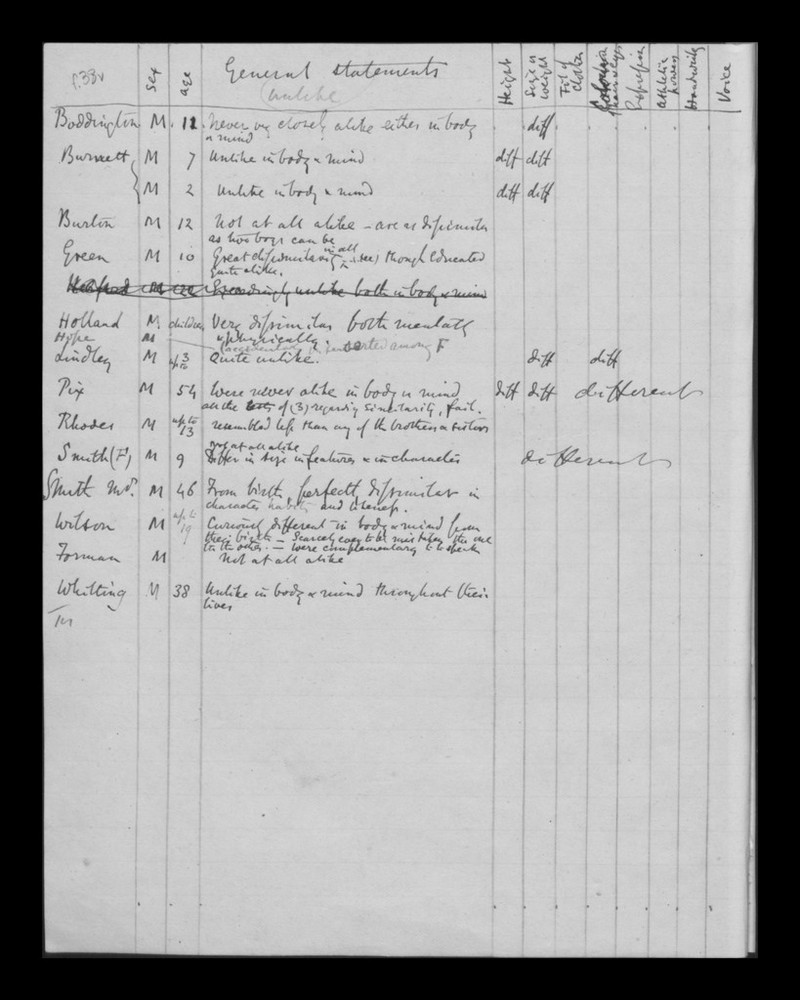 Sex age General statements Height Size & weight Fit of clothes Colour hair & eyes Expression Athletic powers Handwriting Voice
(unlike
Boddington M 12 Never very closely alike either in body diff
& mind
Burnett M 7 Unlike in body & mind diff diff
M 2 Unlike in body & mind diff diff
Burton M 12 Not at all alike – are as dissimilar
as two boys can be
Green M 10 Great dissimilarity in all though educated
quite alike.
unlike both in body & mind
Holland M children Very dissimilar both mentally
& physically.
Hope M inserted among F
Lindley M up to 3 Quite unlike. diff diff
Pix M 54 Were never alike in body or mind diff diff different
all the tests of (3) regarding similarity, fail.
Rhodes M up to 13 resembled less than any of the brothers or sisters
not at all alike
Smith (F) M 9 Differ in size in features & in character different
Smith M 46 From birth perfectly dissimilar in
character habits and likeness.
Wilson M up to 19 Curiously different in body & mind from
their birth – Scarcely ever to be mistaken the one
for the other. – were complementary so to speak
Forman M Not at all alike
Whitting M 38 Unlike in body & mind throughout their
lives